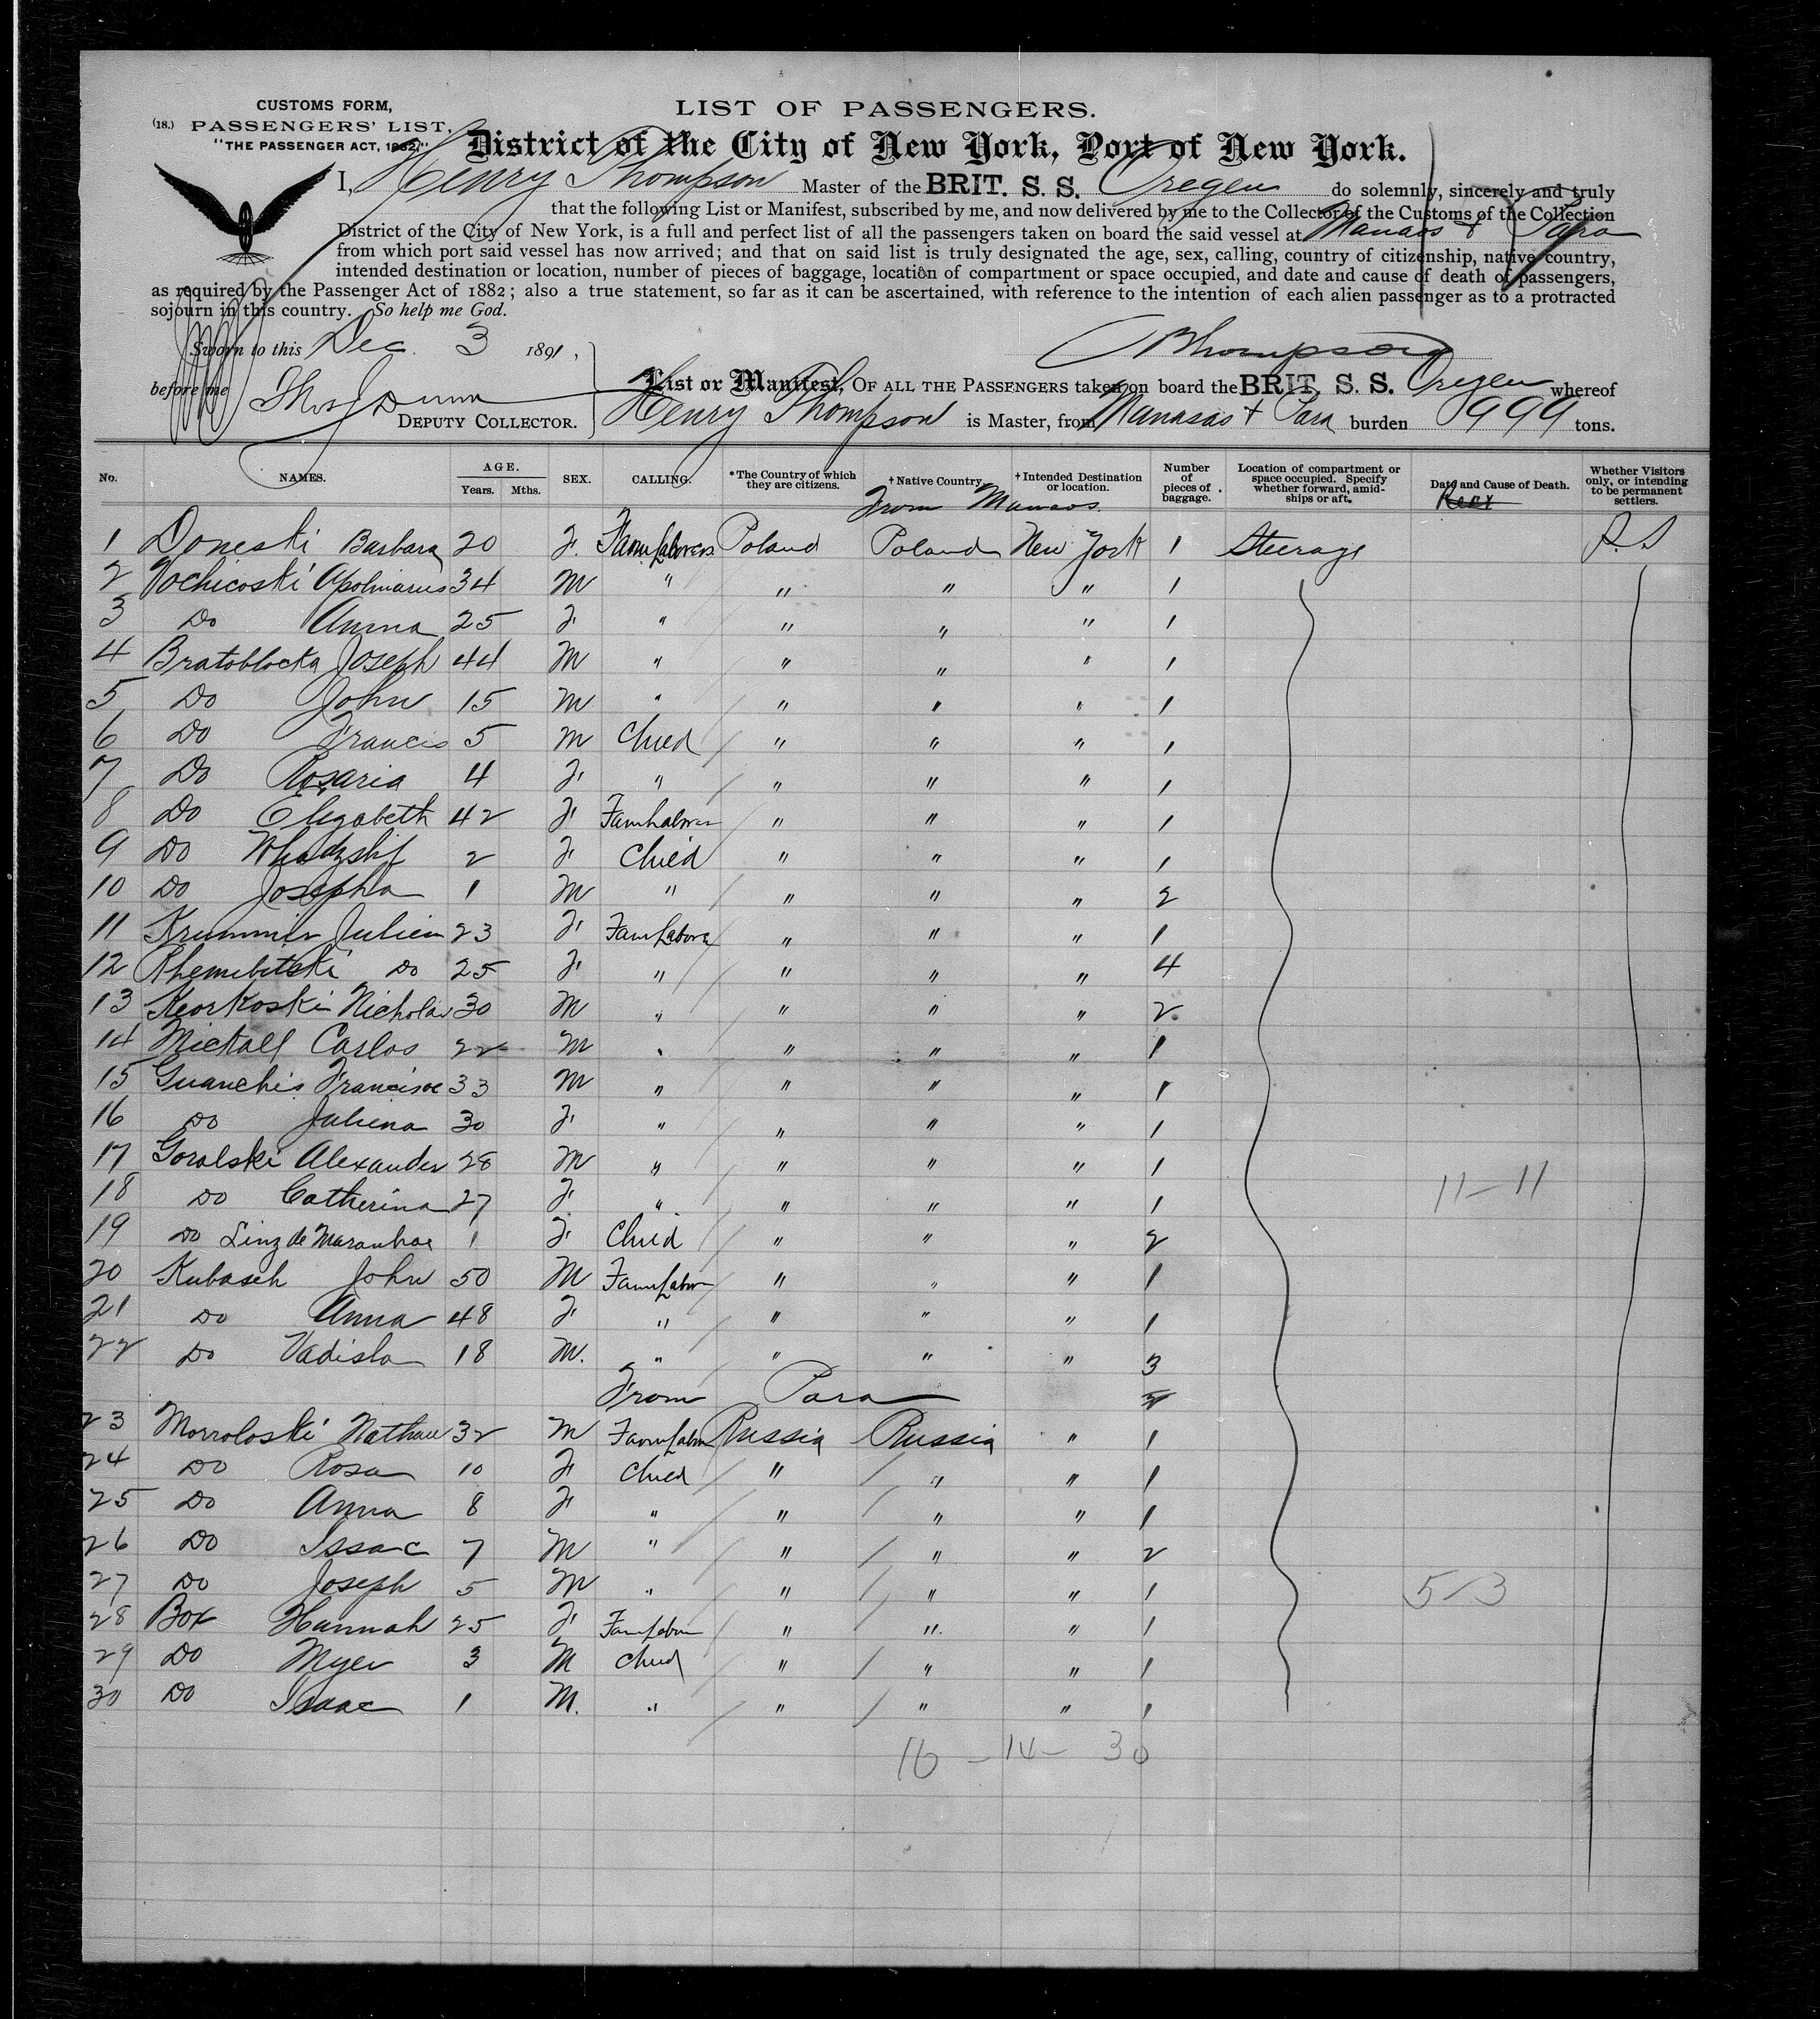 CUSTOMS FORM,
(18.) PASSENGERS' LIST,
"THE PASSENGER ACT, 1882."
LIST OF PASSENGERS.
District of the City of New York, Port of New York.
I, Henry Thompson Master of the BRIT. S. S. Oregen do solemnly, sincerely and truly
that the following List or Manifest, subscribed by me, and now delivered by me to the Collector of the Customs of the Collection
District of the City of New York, is a full and perfect list of all the passengers taken on board the said vessel at Manaos & Para
from which port said vessel has now arrived; and that on said list is truly designated the age, sex, calling, country of citizenship, native country,
intended destination or location, number of pieces of baggage, location of compartment or space occupied, and date and cause of death of passengers,
as required by the Passenger Act of 1882; also a true statement, so far as it can be ascertained, with reference to the intention of each alien passenger as to a protracted
sojourn in this country. So help me God.
Sworn to this Dec. 3 1891,
before me Thos J Dunn
DEPUTY COLLECTOR.
Thompson
List or Manifest, OF ALL THE PASSENGERS taken on board the BRIT. S. S. Oregen whereof
Henry Thompson is Master, from Manaos & Para burden 999 tons.
No. NAMES. AGE. Years. Mths. SEX. CALLING. *The Country of which they are citizens. †Native Country. †Intended Destination or location. Number of pieces of baggage. Location of compartment or space occupied. Specify whether forward, amidships or aft. Date and Cause of Death. Whether Visitors only, or intending to be permanent settlers.
From Manaos.
1 Doneski Barbara 20 F. Farm Laborers Poland Poland New York 1 Steerage P.S
2 Vochicoski Apolinarus 34 M " " " " 1
3 Do Anna 25 F. " " " " 1
4 Bratoblocka Joseph 44 M " " " " 1
5 Do John 15 M " " " " 1
6 Do Francis 5 M Child " " " 1
7 Do Rosaria 4 F. " " " " 1
8 Do Elizabeth 42 F. Farm Laborer " " " 1
9 Do 2 F. Child " " " 1
10 Do Josepha 1 M " " " " 2
11 Krummer Julien 23 F. Farm Labora " " " 1
12 Rhemibitski Do 25 F. " " " " 4
13 Keorkoski Nicholas 30 M " " " " 2
14 Mickall Carlos 22 M " " " " 1
15 Guanchis Francisoe 33 M " " " " 1
16 Do Juliena 30 F. " " " " 1
17 Goralski Alexander 28 M " " " " 1
18 Do Catherina 27 F. " " " " 1
11-11
19 Do Linz de Maranhae 1 F. Child " " " 2
20 Kubaseh John 50 M Farm Labor " " " 1
21 Do Anna 48 F. " " " " 1
22 Do Vadisla 18 M. " " " " 3
From Para
23 Morroloski Nathan 32 M Farm Labor Russia Russia " 1
24 Do Rosa 10 F. Child " " " 1
25 Do Anna 8 F. " " " " 1
26 Do Issac 7 M " " " " 2
27 Do Joseph 5 M " " " " 1
5-3
28 Box Hannah 25 F. Farm Labor " " " 1
29 Do Myer 3 M Child " " " 1
30 Do Isaac 1 M. " " " " 1
16 - 14 - 30